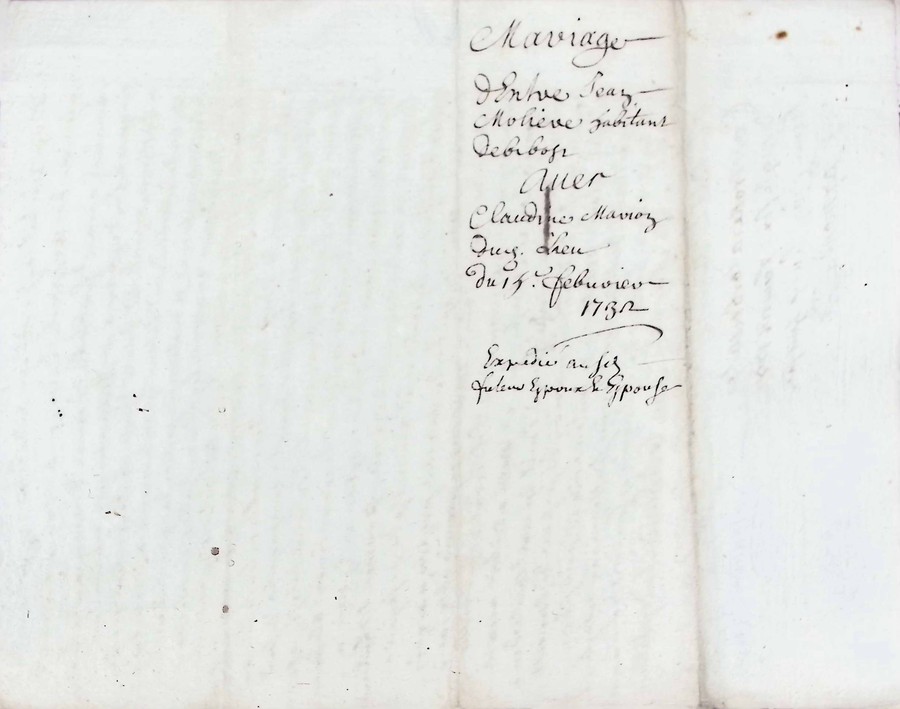 Mariage
d'Entre Jean
Moliere habitant
de bibost
Avec
Claudine Marion
du lieu
du 15e. februrier
1732
Expedié au sd
futeur Epoux & Epouse